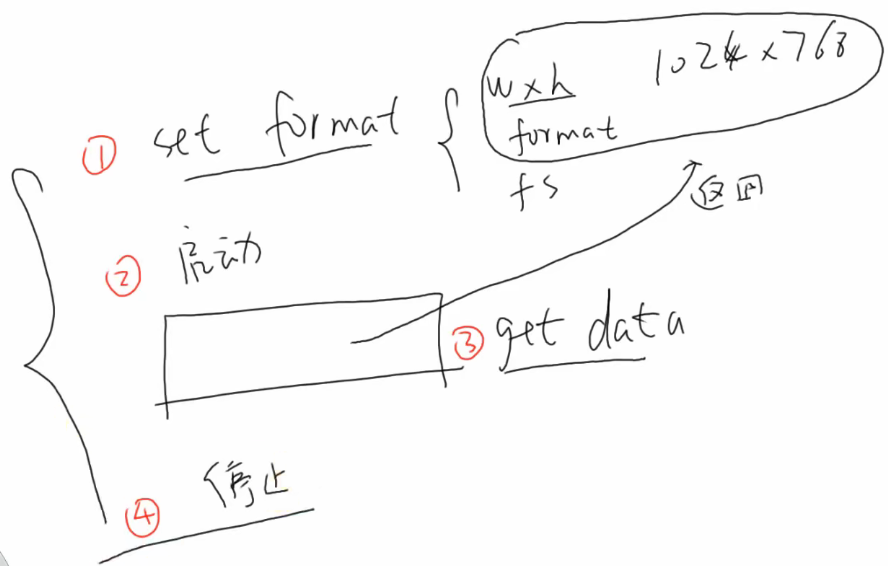 ① set format { w x h 1024 x 768
format
fs
返回
② 启动
③ get data
④ 停止